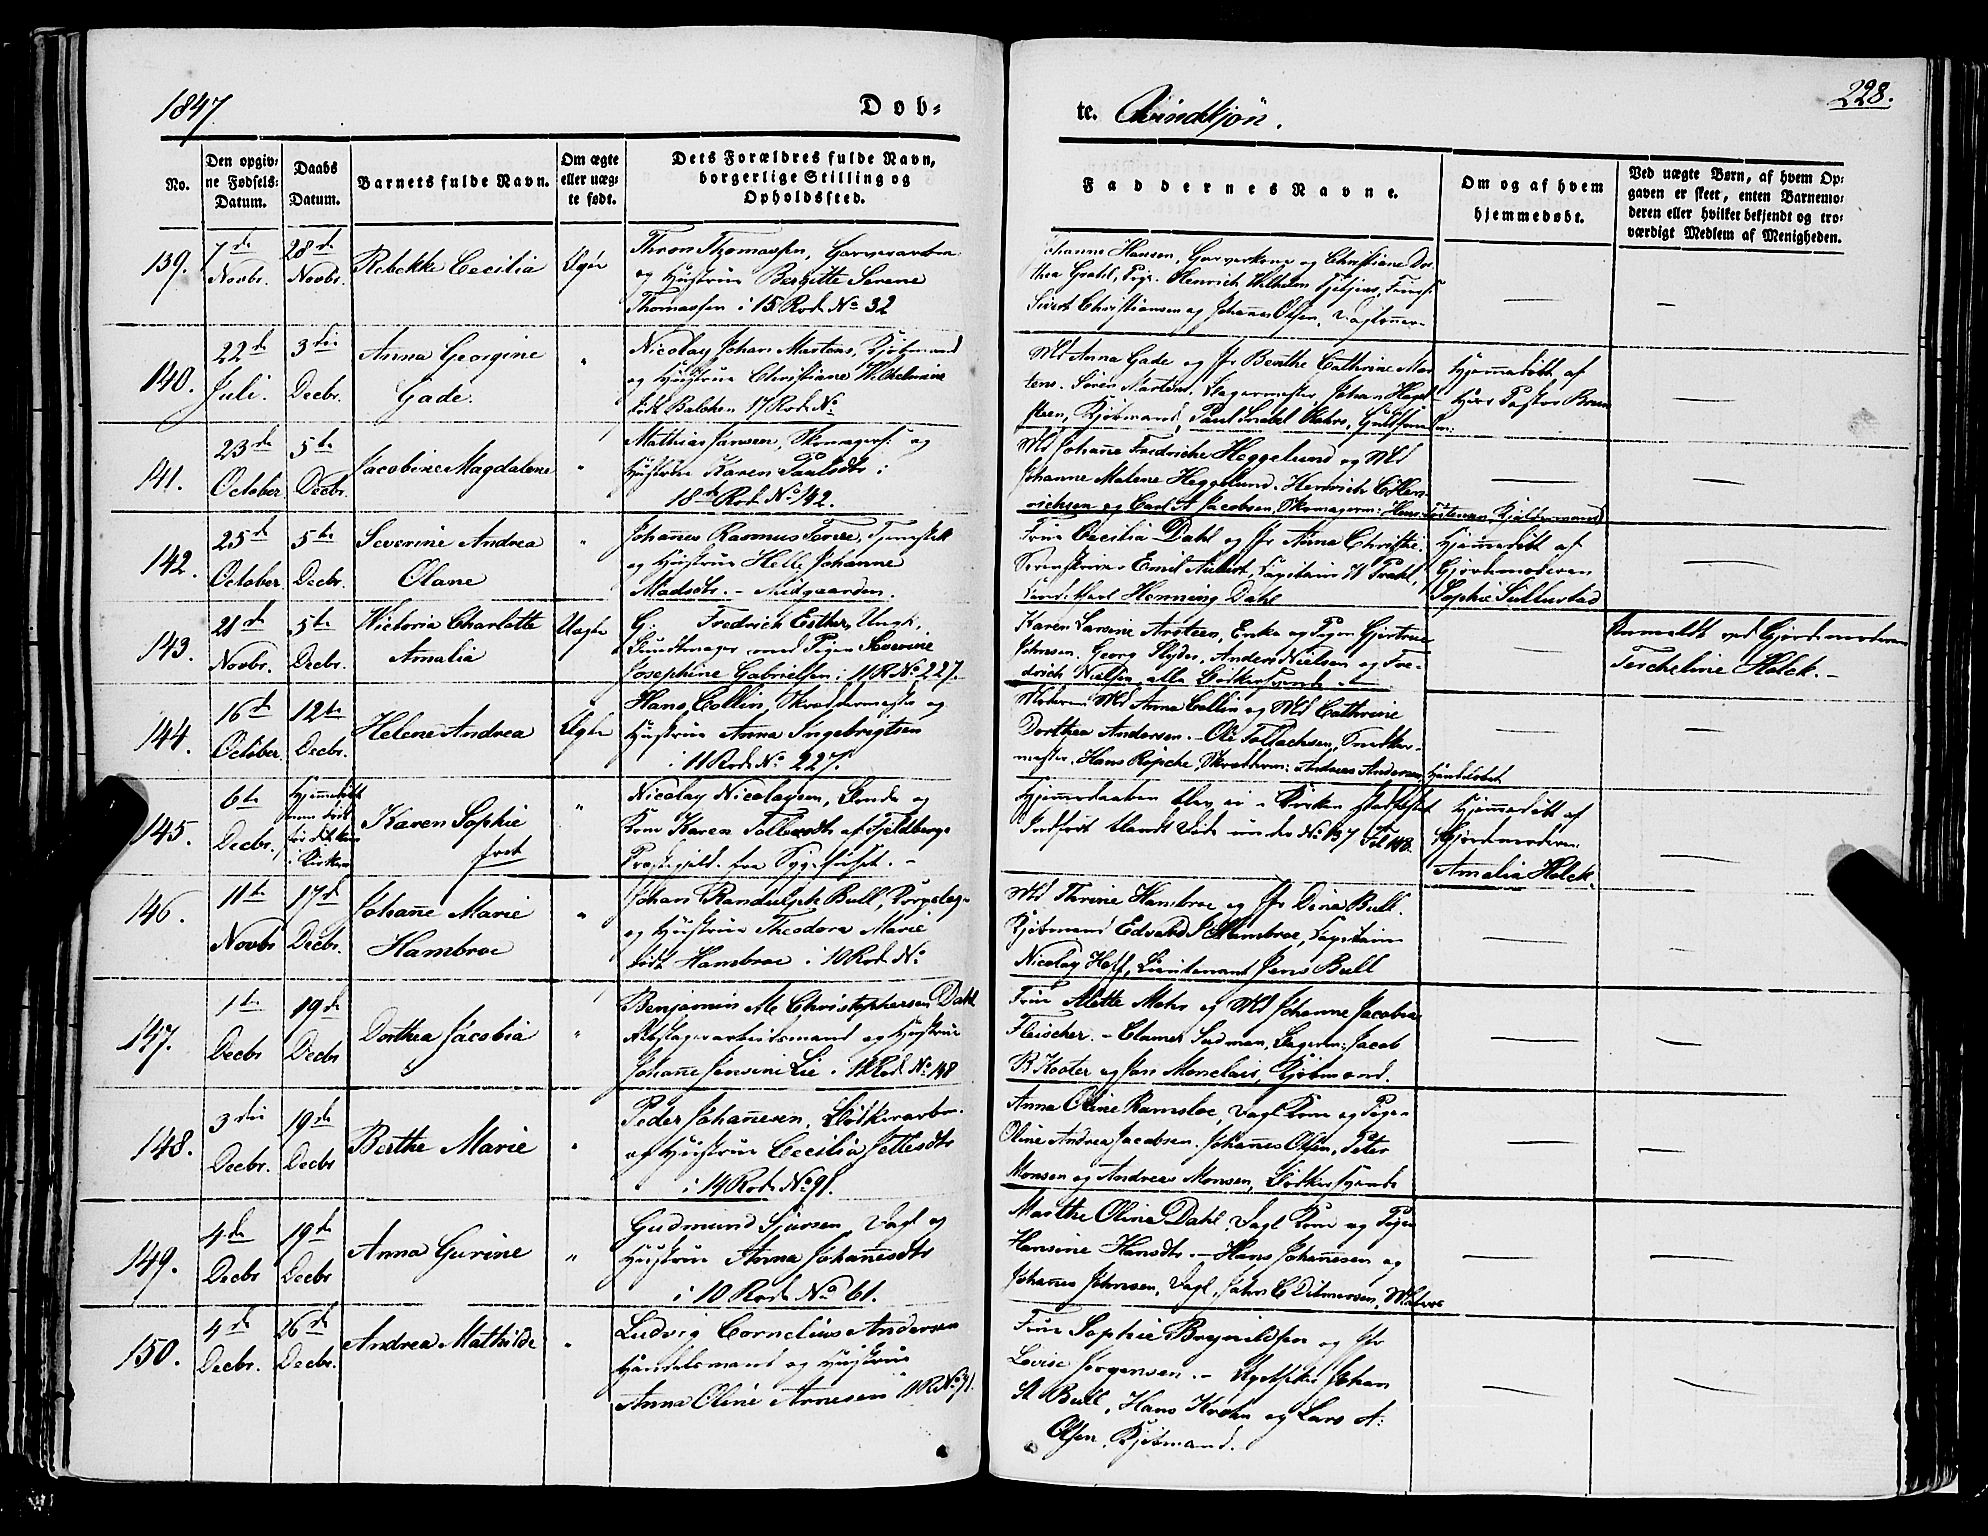 1847.
Døb-
te. Qvindekjøn.
228.
No.
Den opgiv-
ne Fødsels-
Datum.
Daabs
Datum.
Barnets fulde Navn.
Om ægte
eller uæg-
te født.
Dets Forældres fulde Navn,
borgerlige Stilling og
Opholdssted.
Faddernes Navne.
Om og af hvem
hjemmedøbt.
Ved uægte Børn, af hvem Op-
gaven er skeet, enten Barnemo-
deren eller hvilket bekjendt og tro-
værdigt Medlem af Menigheden.
139.
7de
Novbr.
28de
Novbr.
Rebekke Cecilia
Ægte
Thron Thomassen, Garverarbm
og Hustrue Bergitte Serene
Thomassen i 15 Rod. No 32
Hansen, Garverkone og Christiane Dor-
thea Grahl, Pige. Henrich Wilhelm
Sivert Christiansen og Johannes Olsen,
140.
22de
Juli.
3die
Decbr.
Anna Georgine
Gade.
"
Nicolay Johan Martens, Kjøbmand
og Hustrue Christiane Wilhelmine
født Balchen 17 Rod. No
Md Anna Gade og Jfr Benthe Cathrine Mar-
tens. Søren Martens, Johan
Kjøbmand, Paul
Hjemmedøbt af
Herr Pastor Brun
141.
23de
October
5te
Decbr.
Jacobine Magdalene
"
Mathias Jansen, Skomagers: og
Hustrue Karen Paulsdtr i
18de Rod. No 142.
Md Johanne Fredriche Heggelund og Md
Johanne Malene Heggelund. Henrich C Hen-
richsen og Carl A Jacobsen, Skomagerm:
142.
25de
October
5te
Decbr.
Severine Andrea
Olane
"
Johannes Rasmus
og Hustrue Helle Johanne
Madsdtr. - Midgaarden.
Frue Cecilia Dahl og Jfr Anna Christie.
Emil Capitain W Prahl,
Henning Dahl
Hjemmedøbt af
Gjordemoderen
Sophie Sullustad
143.
21de
Novbr.
5te
Decbr.
Victoria Charlotte
Amalia
Uægte
G: Fredrich Esther, Ungk.,
med Pigen Severine
Josephine Gabrielsen i 11 R No 227.
Karen Larsine Arsteen, Enke og Pigen Gjertrue
Johnsen. Georg Flyder, Anders Nielsen og Fre-
drich Nielsen, alle
Anmeldt ved Gjordemoderen
Tercheline Holck. -
144.
16de
October
12te
Decbr.
Helene Andrea
Ægte
Hans Collin, Skræddermester og
Hustrue Anna Ingebrigtsen
i 11 Rod. No 227.
Moderen Md Anna Collin og Md Cathrine
Dorthea Andersen. - Ole Tollachsen, Snedker-
mester, Hans Røpche, Skrædderm: Andreas Andersen,
145.
6te
Decbr.
Hjemmedøbt
i Kirken
Karen Sophie
født
"
Nicolay Nicolaysen, Bonde og
Kone Karen Tollevsdtr af Fjeldbergs
Præstegjeld. fra Sygehuset. -
Hjemmedaaben blev ei i Kirken stadfæstet
Indført blandt Døde under No 137 Fol
Hjemmedøbt af
Gjordemoderen
Amalia Holck.
146.
11te
Novbr
17de
Decbr.
Johanne Marie
Hambroe
"
Johan Randulph Bull,
og Hustrue Theodora Marie
født Hambroe i 10 Rod. No
Md Thrine Hambroe og Jfr Dina Bull.
Kjøbmand Edvard Hambroe, Capitain
Nicolay Hoff, Lieutenant Jens Bull
147.
1te
Decbr
19de
Decbr
Dorthea Jacobia
"
Benjamin M Christophersen Dahl
Reb og Hustrue
Johanne Jensine Lie i Rod. No 48
Frue Alette Mohr og Md Johanne Jacobia
Fleischer. - Clamer Sudman, Jacob
B Kooter og Jan Monclair, Kjøbmænd.
148.
3die
Decbr.
19de
Decbr
Berthe Marie
"
Peder Johannesen, Bødkerarbm.
og Hustrue Cecilia Jettesdtr
i 14 Rod. No 91.
Anna Oline Ramsloe, Vagt Kone og Pigen
Oline Andrea Jacobsen. Johannes Olsen, Peter
Monsen og Andreas Monsen, Bødkersvende
149.
4de
Decbr
19de
Decbr.
Anna Gurine
"
Gudmund Sjursen, Vagt og
Hustrue Anna Johannesdtr
i 10 Rod. No 61.
Marthe Olina Dahl, Vagt Kone og Pigen
Hansine Hansdtr. - Hans Johannesen og
Johannes Johnsen, Vagt, John C Ditmersen,
150.
4de
Decbr.
26de
Decbr.
Andrea Mathilde
"
Ludvig Cornelius Andersen
Handelsmand og Hustrue
Anna Oline Arnesen 11 R No 31.
Frue Sophie Brynildsen og Jfr
Lovise Jørgensen. - Johan
A Bull, Hans Krohn og Lars A:
Olsen, Kjøbmænd.